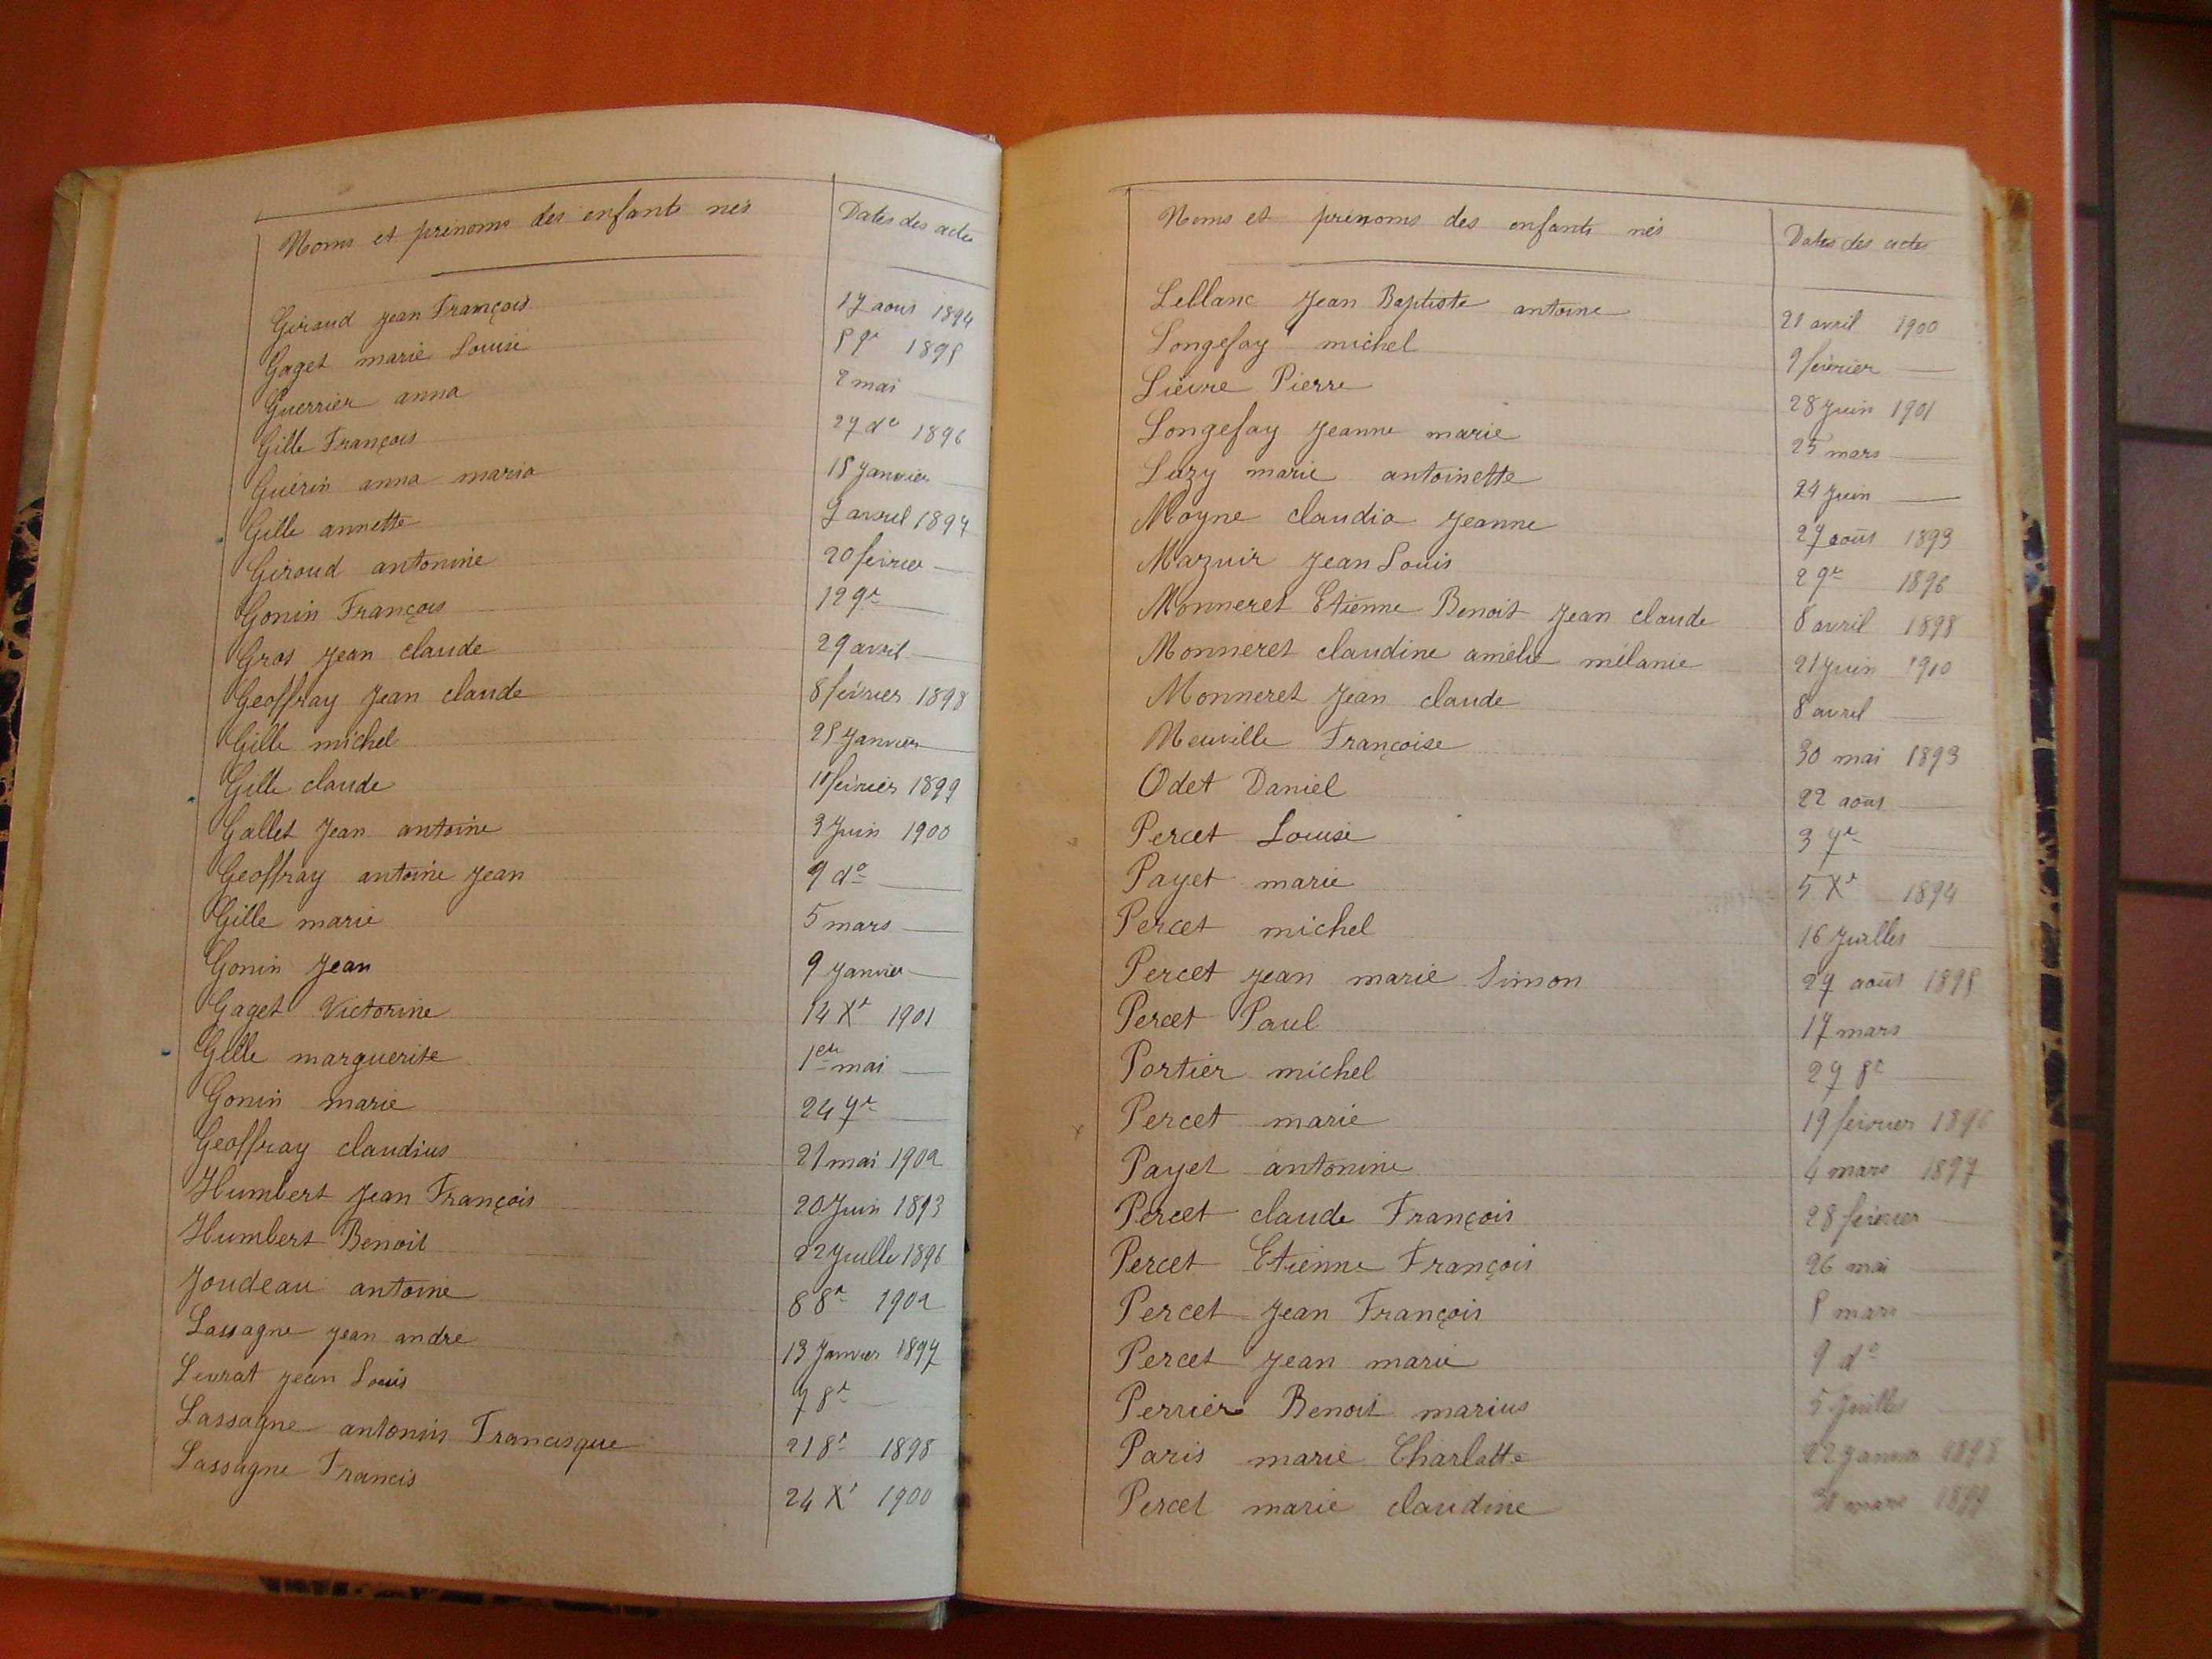 Noms et prénoms des enfants nés Dates des actes
Giraud Jean François 17 aout 1894
Gaget marie Louise 5 9re 1895
Guerrier anna 2 mai
Gille François 27 do 1896
Guérin anna maria 15 Janvier
Gille annette 9 avril 1897
Giroud antonine 20 février
Gonin François 12 9re
Gros Jean claude 29 avril
Geoffray Jean claude 8 février 1898
Gille michel 25 Janvier
Gille claude 11 février 1899
Gallet Jean antoine 3 Juin 1900
Geoffray antoine Jean 9 do
Gille marie 5 mars
Gonin Jean 9 Janvier
Gaget Victorine 14 Xre 1901
Gille marguerite 1er mai
Gonin marie 24 7re
Geoffray claudius 21 mai 1902
Humbert Jean François 20 Juin 1893
Humbert Benoit 22 Juillet 1896
Joudeau antoine 8 8re 1902
Lassagne Jean andre 13 Janvier 1897
Levrat Jean Louis 7 8re
Lassagne antonin Francisque 21 8re 1898
Lassagne Francis 24 Xre 1900
Noms et prénoms des enfants nés Dates des actes
Leblanc Jean Baptiste antoine 21 avril 1900
Longefay michel 2 février
Lièvre Pierre 28 Juin 1901
Longefay Jeanne marie 25 mars
Luzy marie antoinette 24 Juin
Moyne claudia Jeanne 27 août 1893
Mazuir Jean Louis 2 9re 1896
Monneret Etienne Benoit Jean claude 8 avril 1898
Monneret claudine amélie mélanie 21 Juin 1900
Monneret Jean claude 8 avril
Neuville Françoise 30 mai 1893
Odet Daniel 22 août
Percet Louise 3 7re
Payet marie 5 Xre 1894
Percet michel 16 Juillet
Percet Jean marie Simon 27 août 1895
Percet Paul 17 mars
Portier michel 27 8re
Percet marie 19 février 1896
Payet antonine 4 mars 1897
Percet claude François 28 février
Percet Etienne François 26 mai
Percet Jean François 8 mars
Percet Jean marie 9 do
Perrier Benoit marius 5 Juillet
Paris marie Charlotte 22 Janvier 1898
Percet marie claudine mars 1899